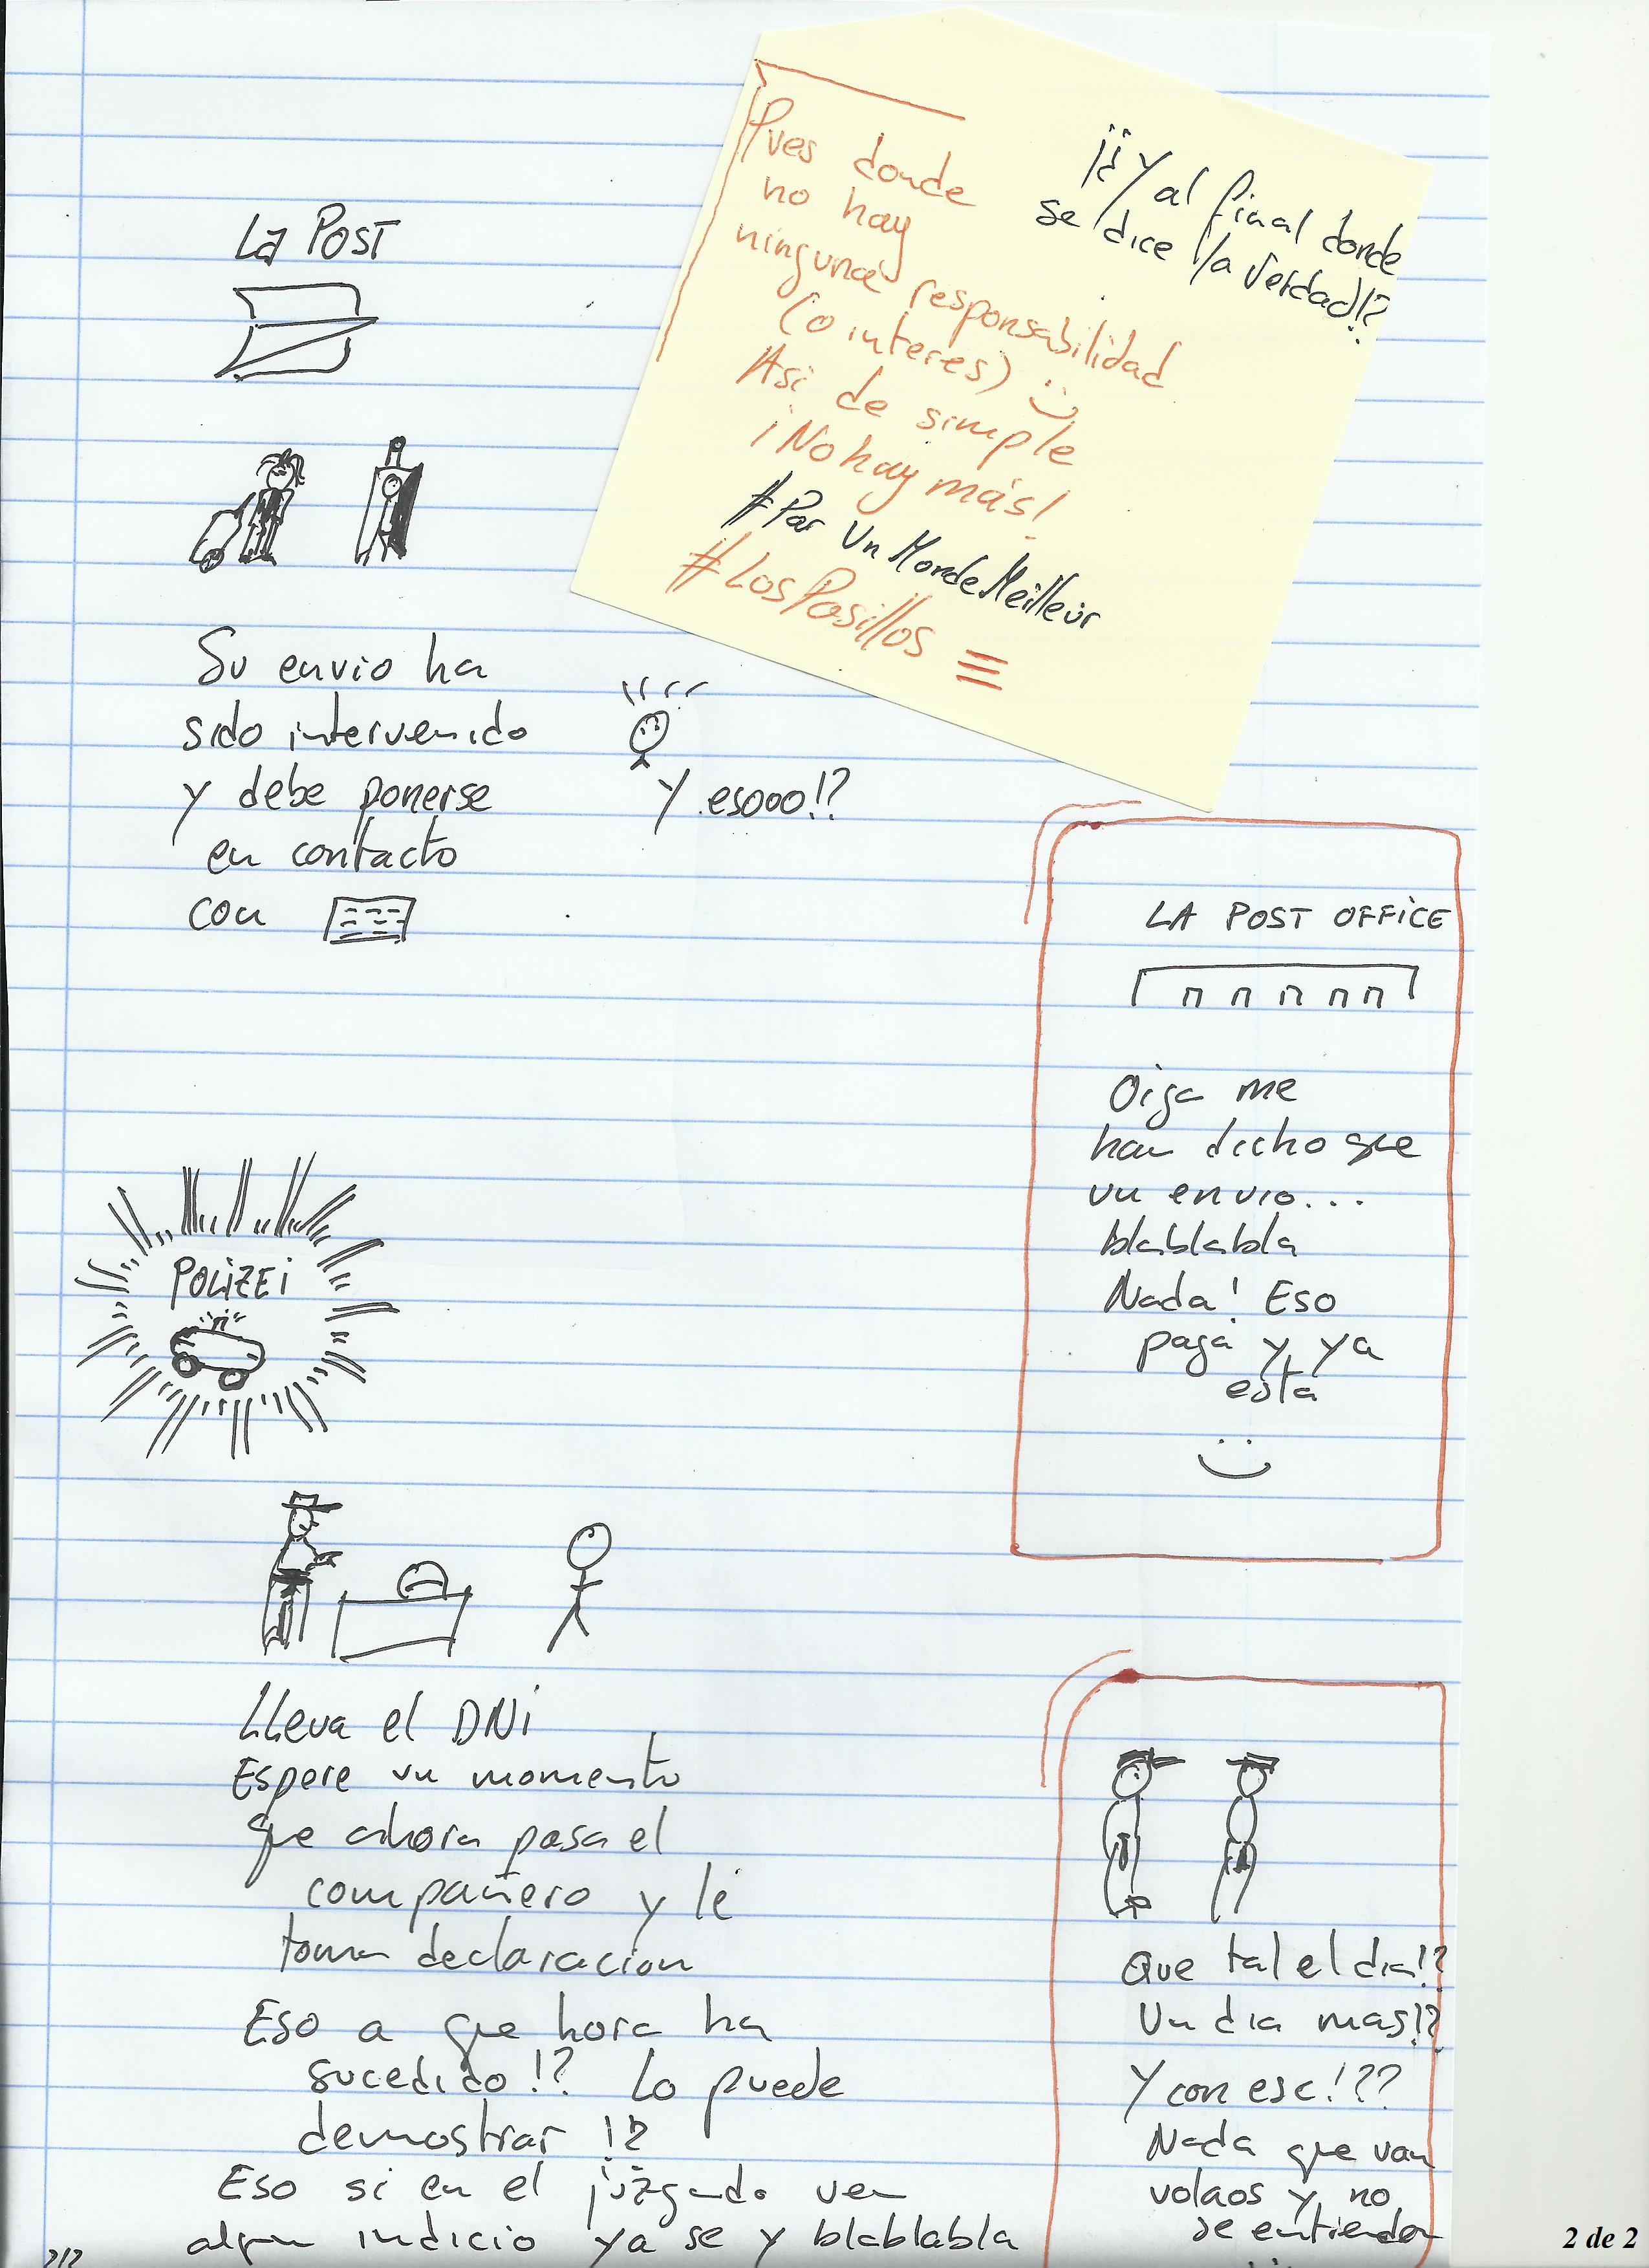 ¡¡Y al final donde
se dice la verdad!?
Pues donde
no hay
ninguna responsabilidad
(o interes)
Asi de simple
¡No hay más!
#Par Un Monde Meilleur
#Los Pasillos
La POST
Su envio ha
sido intervenido
y debe ponerse
en contacto
con
Y esooo!?
LA POST OFFICE
Oiga me
han dicho que
un envio...
blablabla
Nada! Eso
paga y ya
esta
POLIZEI
LLeva el DNi
Espere un momento
que ahora pasa el
compañero y le
toma declaracion
Eso a que hora ha
sucedido!? Lo puede
demostrar!?
Eso si en el juzgado ven
algun indicio ya se y blablabla
Que tal el dia!?
Un dia mas!?
Y con ese!??
Nada que van
volaos y no
se entienden
2/2
2 de 2